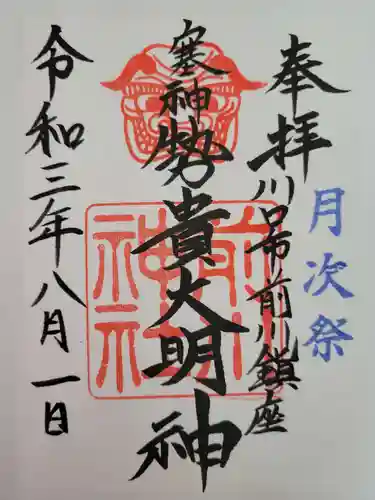 奉拝
月次祭
川口市前川鎮座
塞神
勢貴大明神
令和三年八月一日
前川神社